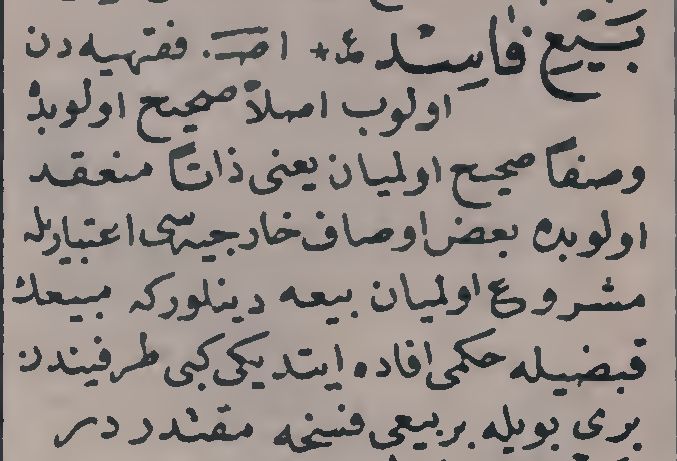 بَيْعِ فَاسِدْ ع٭ اصـ. فقهيه دن
اولوب اصلاً صحيح اولوبده
وصفاً صحيح اولميان يعنى ذاتاً منعقد
اولوبده بعض اوصاف خارجيه سى اعتباريله
مشروع اولميان بيعه دينلور كه مبيعك
قبضيله حكمى افاده ايتديكى كبى طرفيندن
برى بويله بر بيعى فسخه مقتدر در